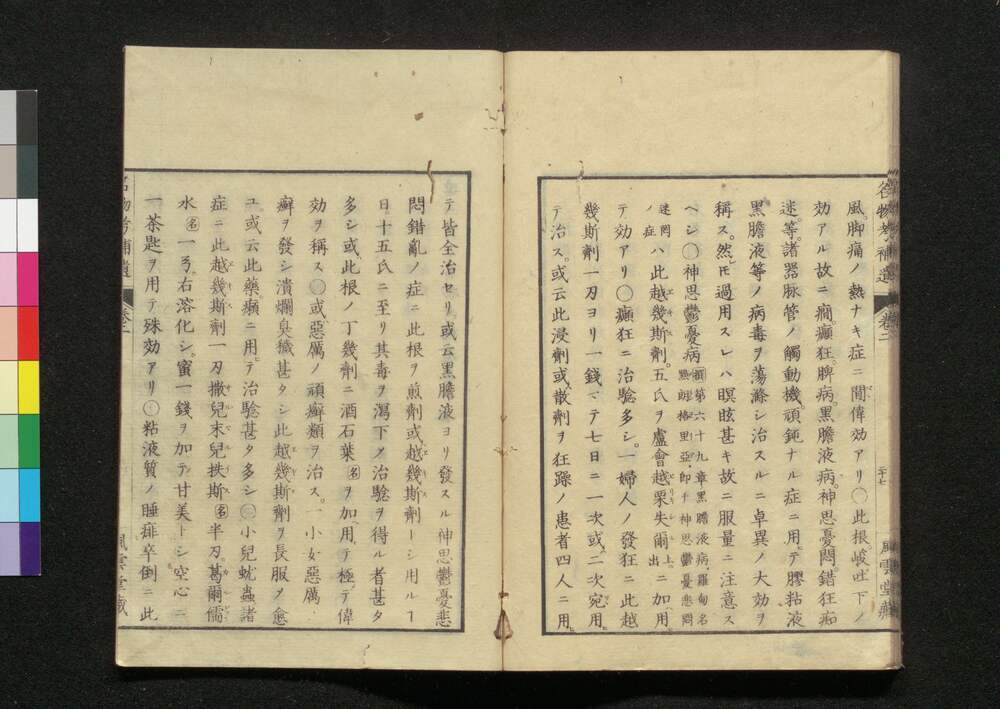 名物考補遺 卷二 二十七 風雲堂藏
風。脚痛ノ熱ナキ症ニ間偉効アリ〇此根峻吐下ノ
効アル故ニ癎癲狂。脾病。黒膽液病。神思憂悶錯狂痴
迷。等。諸器脉管ノ觸動機。頑鈍ナル症ニ用テ膠粘液
黒膽液等ノ病毒ヲ蕩滌シ治スルニ卓異ノ大効ヲ
稱ス。然𪜈過用スレハ瞑眩甚キ故ニ服量ニ注意ス
ヘシ〇神思鬱憂病
第六十九章黒膽液病。羅甸名
格里亞。即チ神思鬱憂悲悶
迷罔
ノ症
ハ此越幾斯劑。五氏ヲ盧會越栗失爾
上ニ
出
加用
テ効アリ〇癲狂ニ治驗多シ。一婦人ノ發狂ニ此越
幾斯劑一刀ヨリ一錢ニテ七日ニ一次或ニ二次宛用
テ治ス。或云此浸劑或散劑ヲ狂躁ノ患者四人ニ用
テ皆全治セリ或云黒膽液ヨリ發スル神思鬱憂悲
悶錯亂ノ症ニ此根ヲ煎劑或越幾斯劑ーシ用ルヿ
日。十五氏ニ至リ其毒ヲ瀉下ノ治驗ヲ得ル者甚タ
多シ或此根ノ丁幾劑ニ酒石葉名ヲ加用テ極テ偉
効ヲ稱ス〇或惡厲ノ頑癬類ヲ治ス。一小女惡厲
癬ヲ發シ潰爛臭穢甚タシ此越幾斯劑ヲ長服ノ愈
ユ或云此藥癩ニ用テ治驗甚タ多シ〇小兒蚘蟲諸
症ニ此越幾斯劑一刀。撒兒末兒抶斯名半刀。葛爾儒
水名一弓右溶化シ。蜜一錢ヲ加テ甘美トシ空心ニ
一茶匙ヲ用テ殊効アリ〇粘液質ノ睡痱卒倒ニ此
名物考補遺 卷二 風雲堂藏